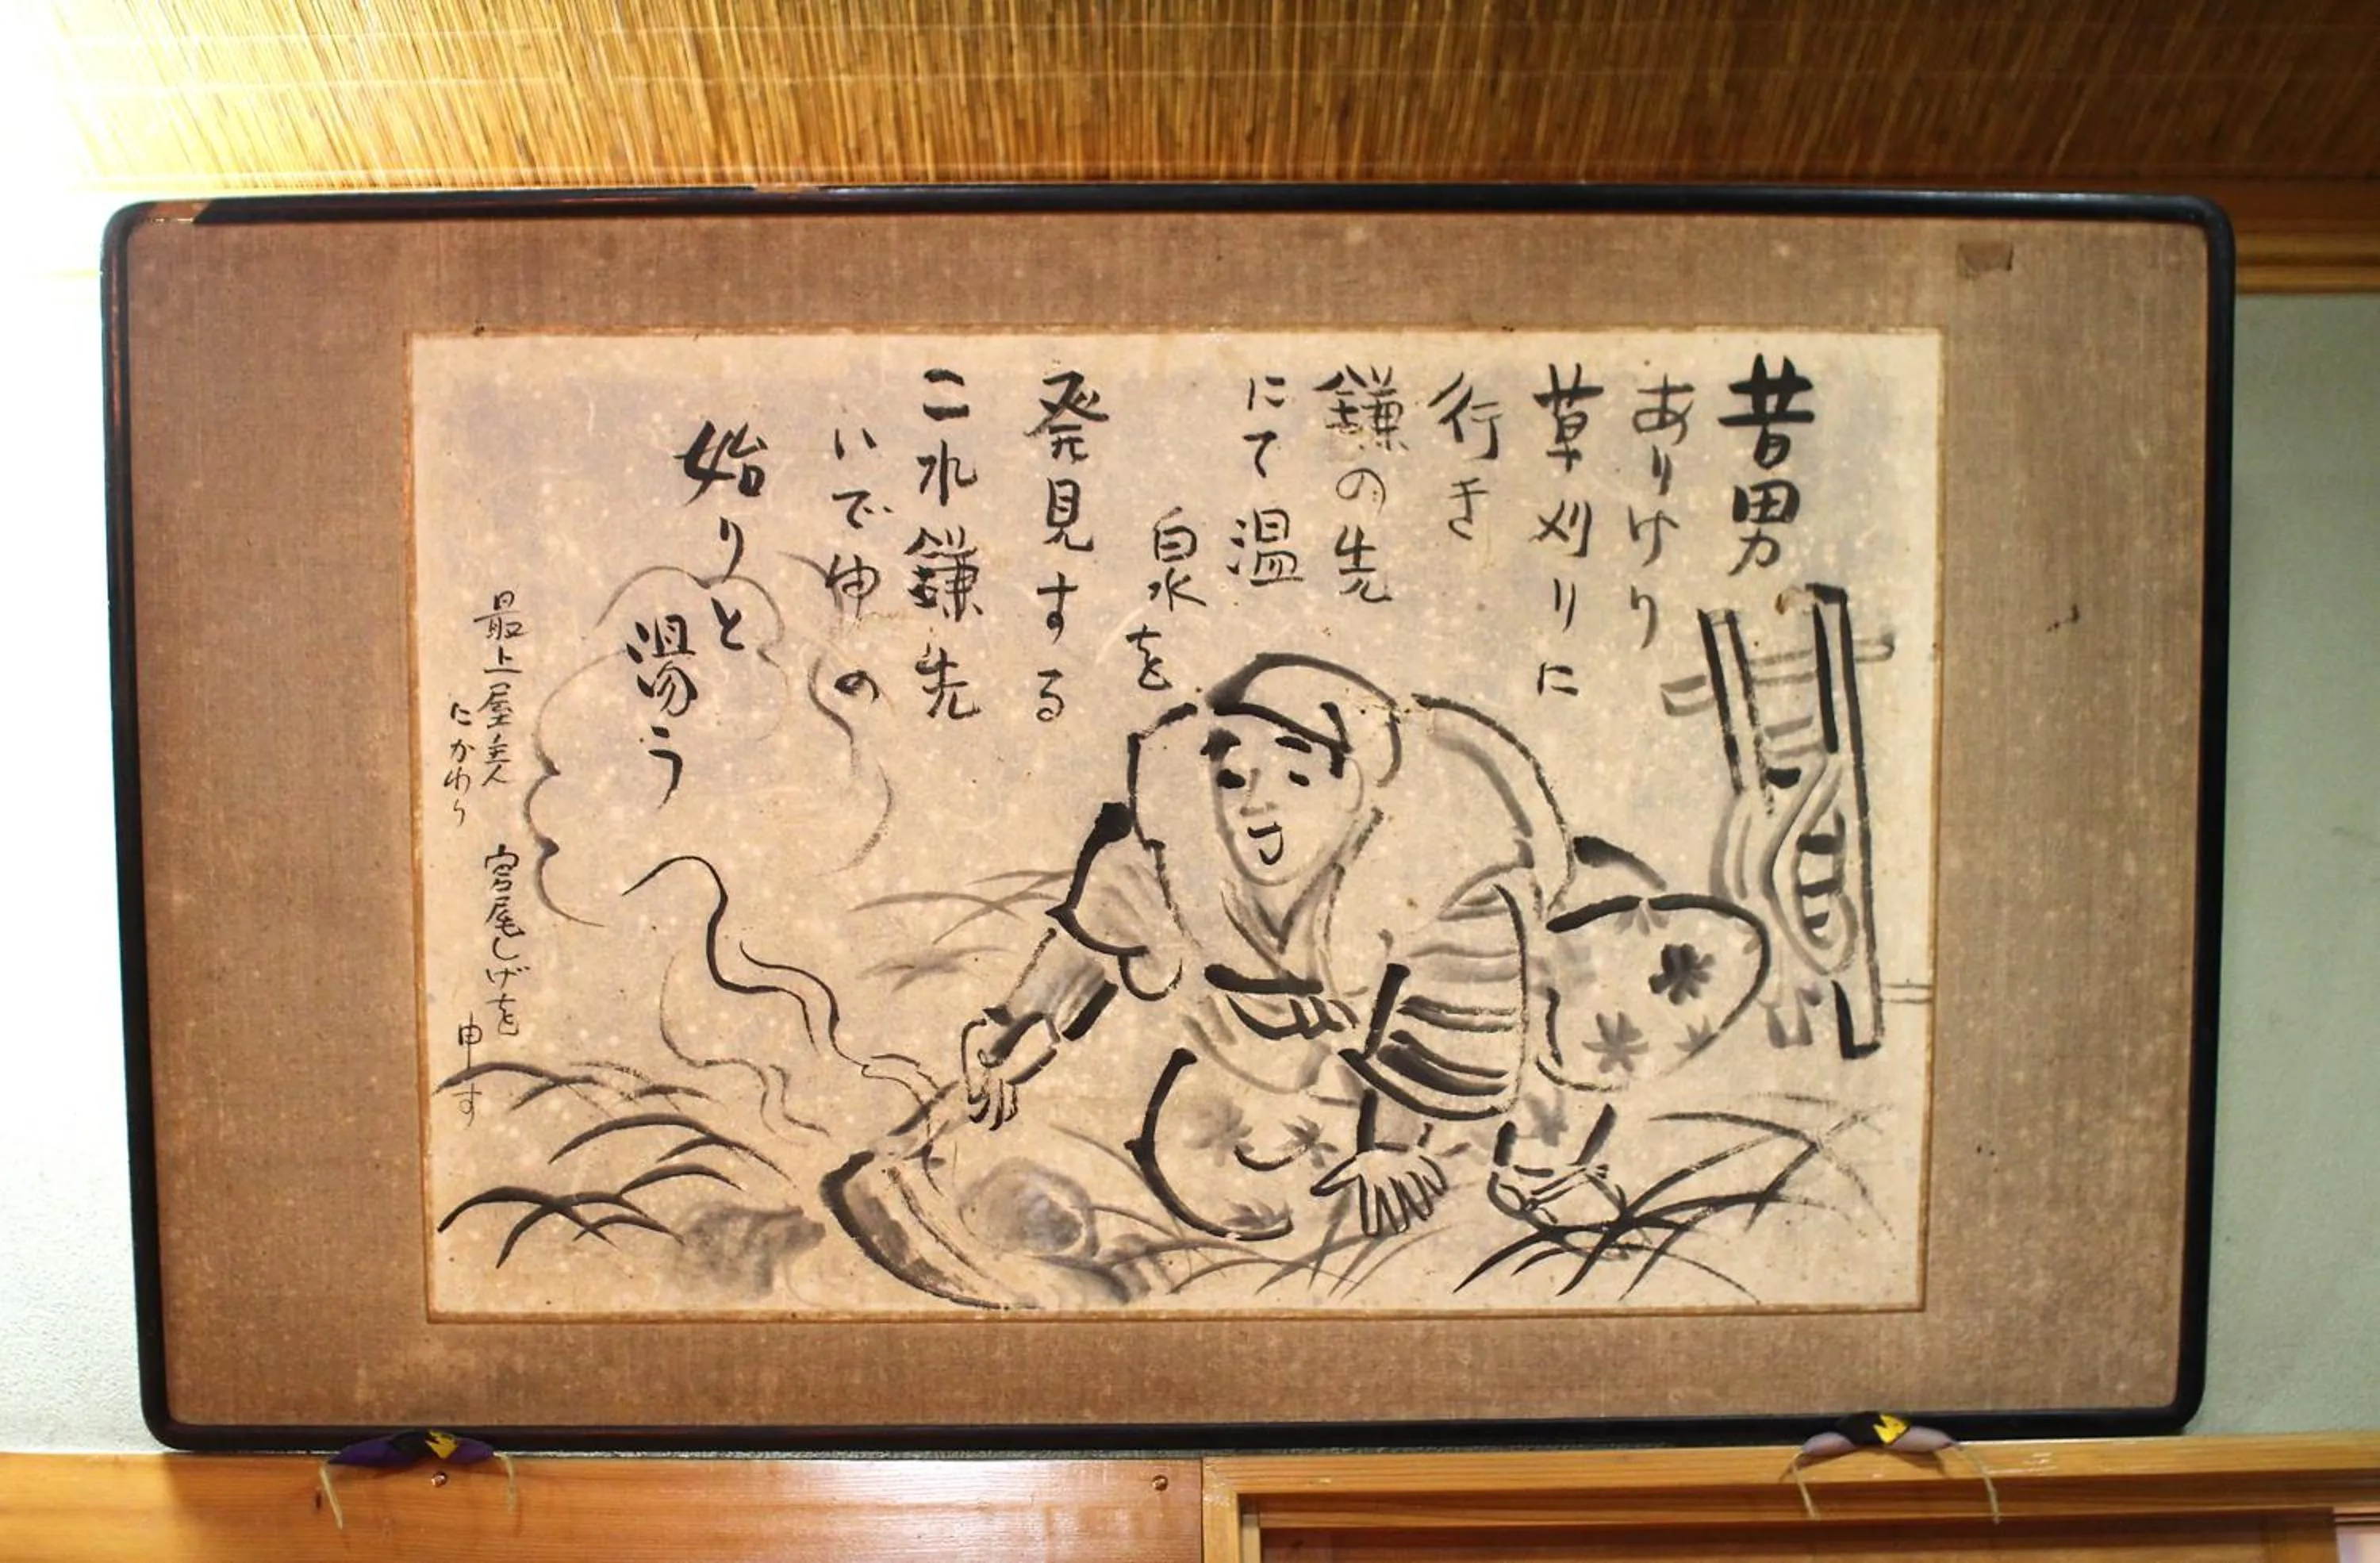 昔男
ありけり
草刈りに
行き
鎌の先
にて温
泉を
発見する
二れ鎌先
いで湯の
始りと
湯う
最上屋主人
にかわり
宮尾しげを
申す